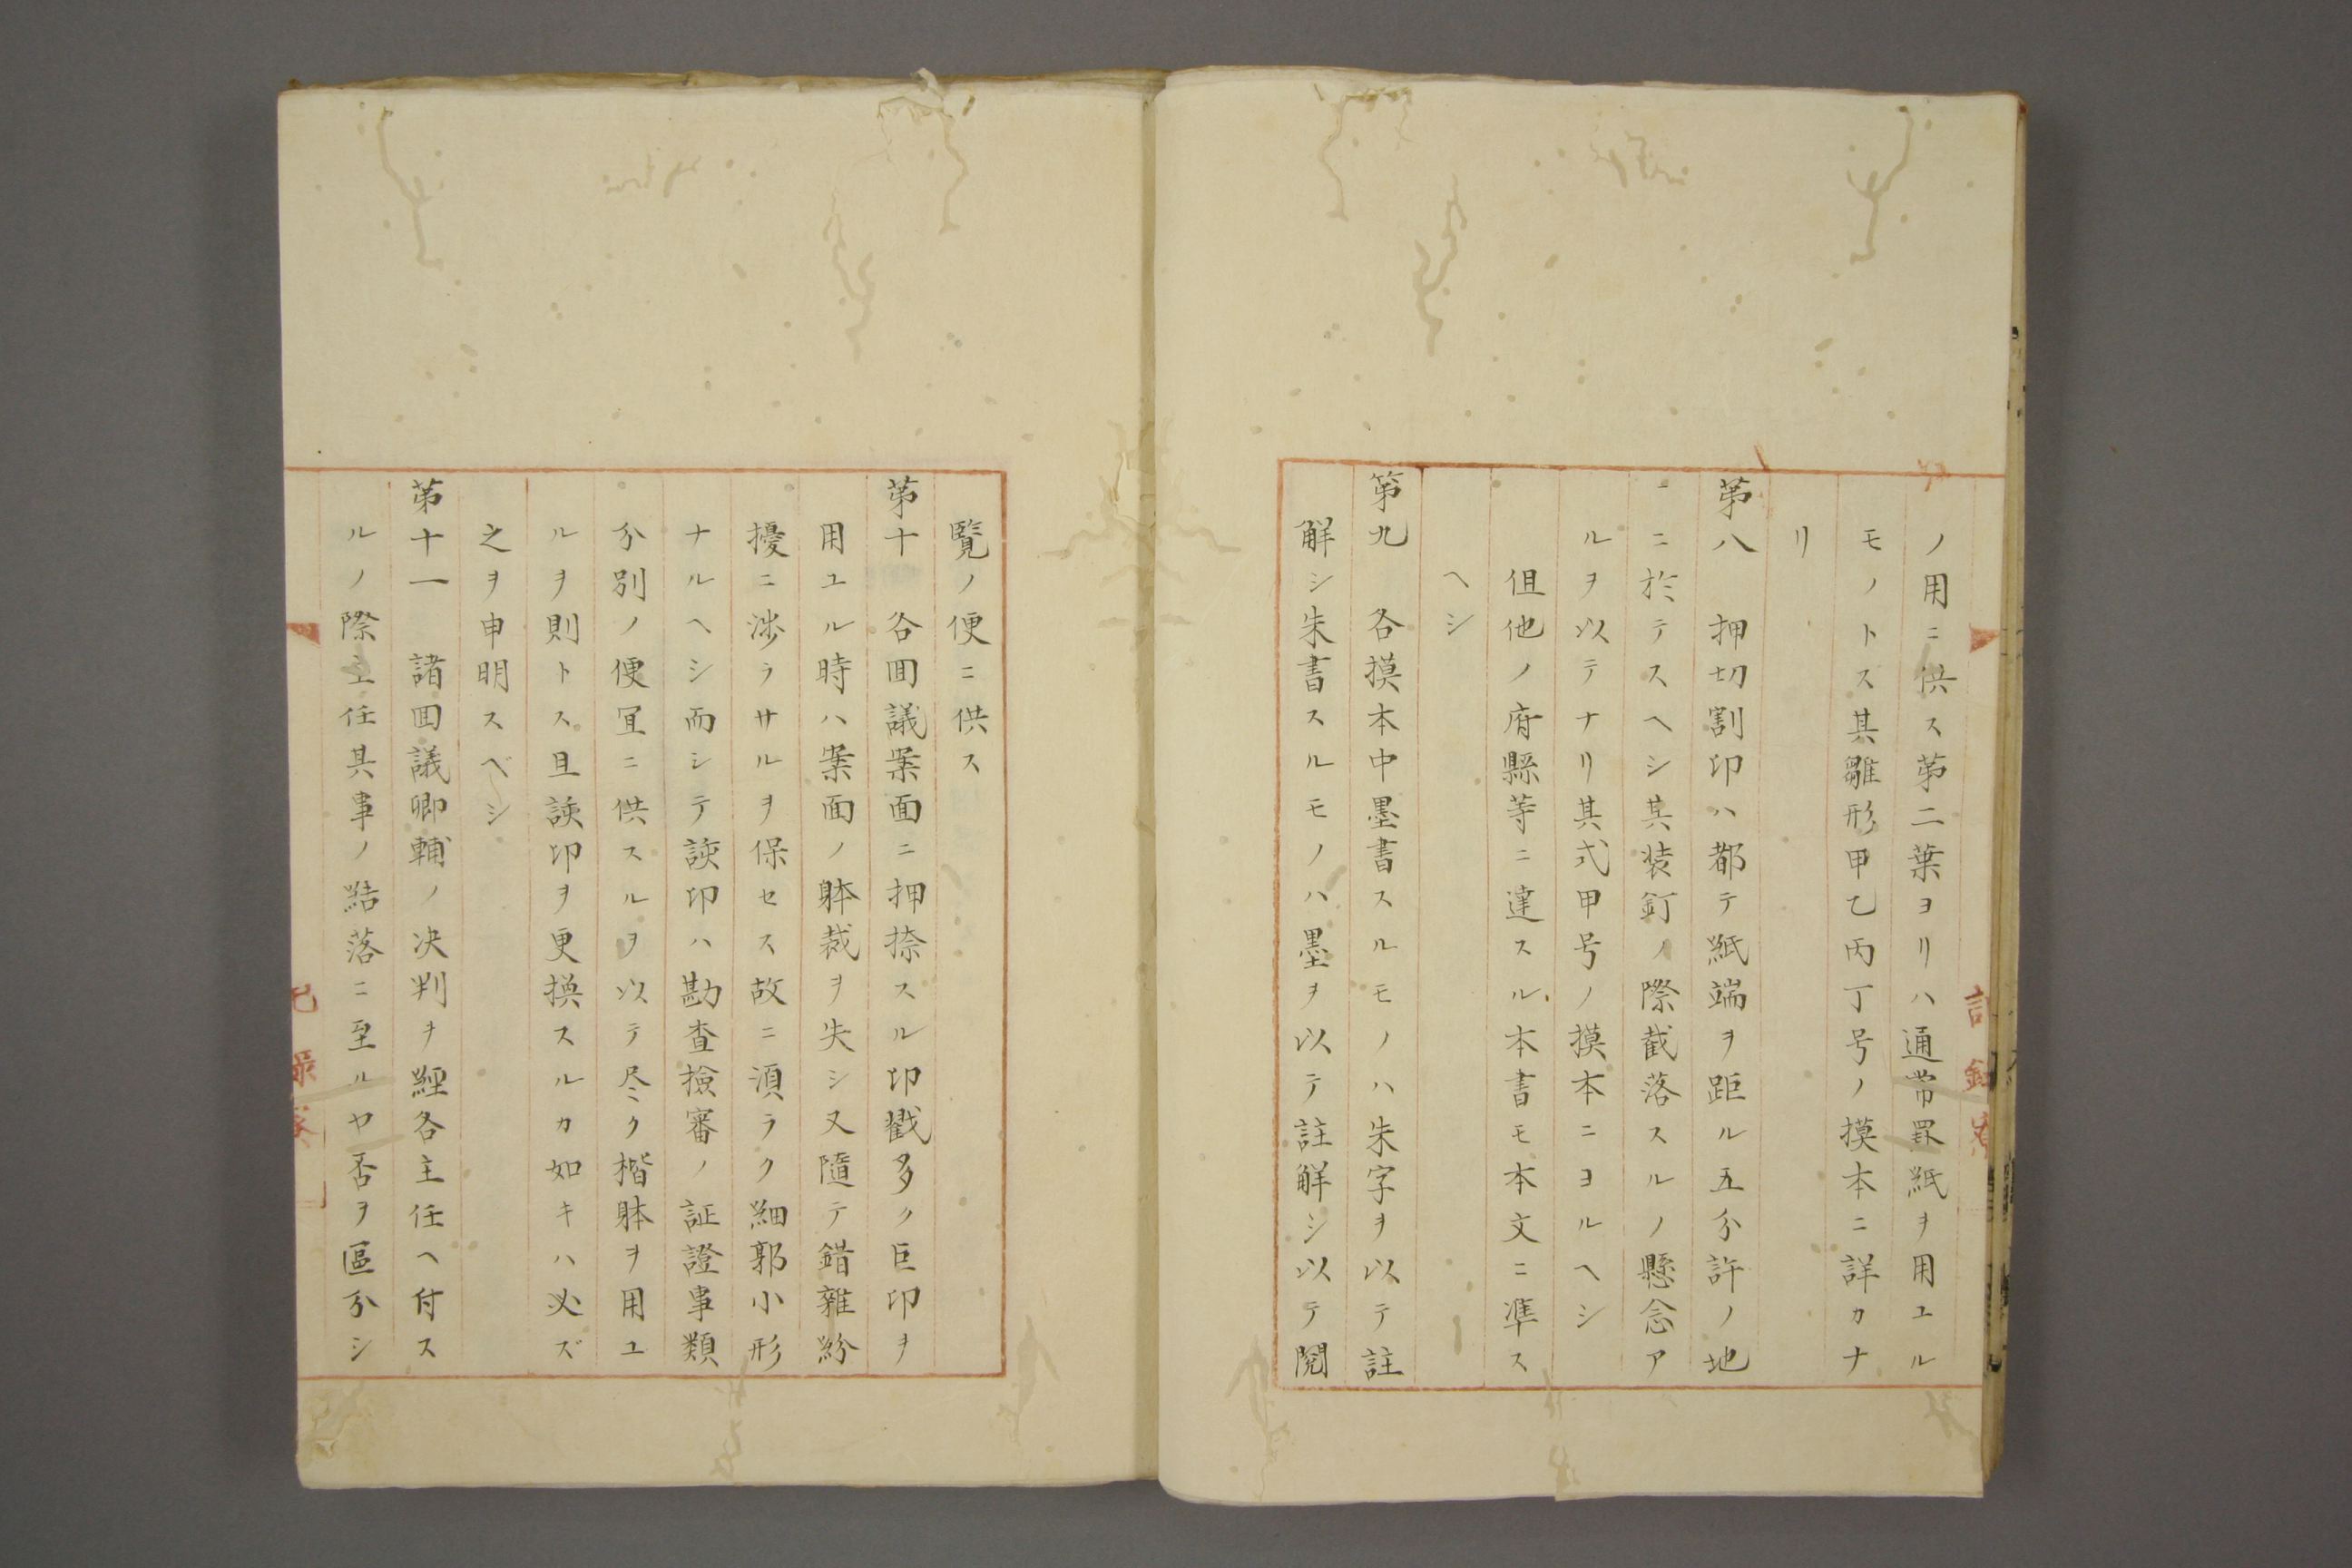 ノ用ニ供ス第二葉ヨリハ通常罫紙ヲ用ユル
モノトス其雛形甲乙丙丁号ノ摸本ニ詳カナ
リ
第八　押切割印ハ都テ紙端ヲ距ル五分許ノ地
ニ於テスヘシ其装釘ノ際截落スルノ懸念ア
ルヲ以テナリ其式甲号ノ摸本ニヨルヘシ
但他ノ府縣等ニ達スル本書モ本文ニ準ス
ヘシ
第九　各摸本中墨書スルモノハ朱字ヲ以テ註
解シ朱書スルモノハ墨ヲ以テ註解シ以テ閲
覧ノ便ニ供ス
第十　各回議案面ニ押捺スル印戳多ク巨印ヲ
用ユル時ハ案面ノ躰裁ヲ失シ又隨テ錯雜紛
擾ニ渉ラサルヲ保セス故ニ湏ラク細郭小形
ナルヘシ而シテ該印ハ勘査撿審ノ証證事類
分別ノ便冝ニ供スルヲ以テ尽ク楷躰ヲ用ユ
ルヲ則トス且該印ヲ更換スルカ如キハ必ズ
之ヲ申明スベシ
第十一　諸回議卿輔ノ决判ヲ經各主任ヘ付ス
ルノ際主任其事ノ結落ニ至ルヤ否ヲ區分シ